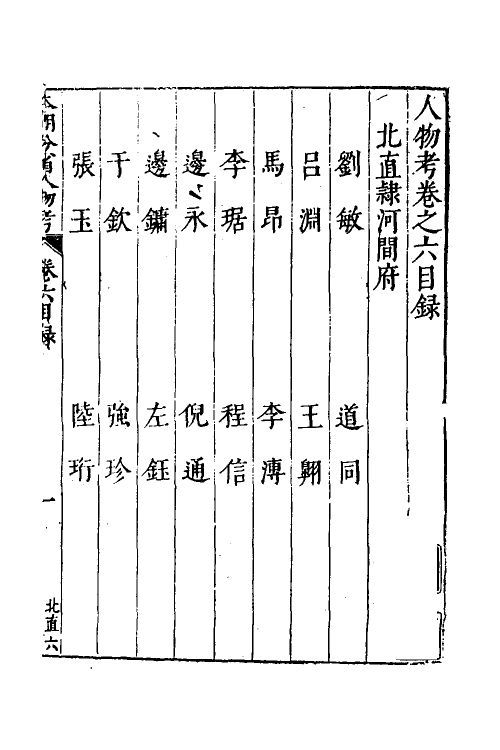 人物考卷之六目録
北直隷河間府
劉敏 道同
呂淵 王翺
馬昂 李漙
李琚 程信
邊永 倪通
邊鏞 左鈺
于欽 強珍
張玉 陸珩
本朝分省人物考 卷六目録 一 北直六